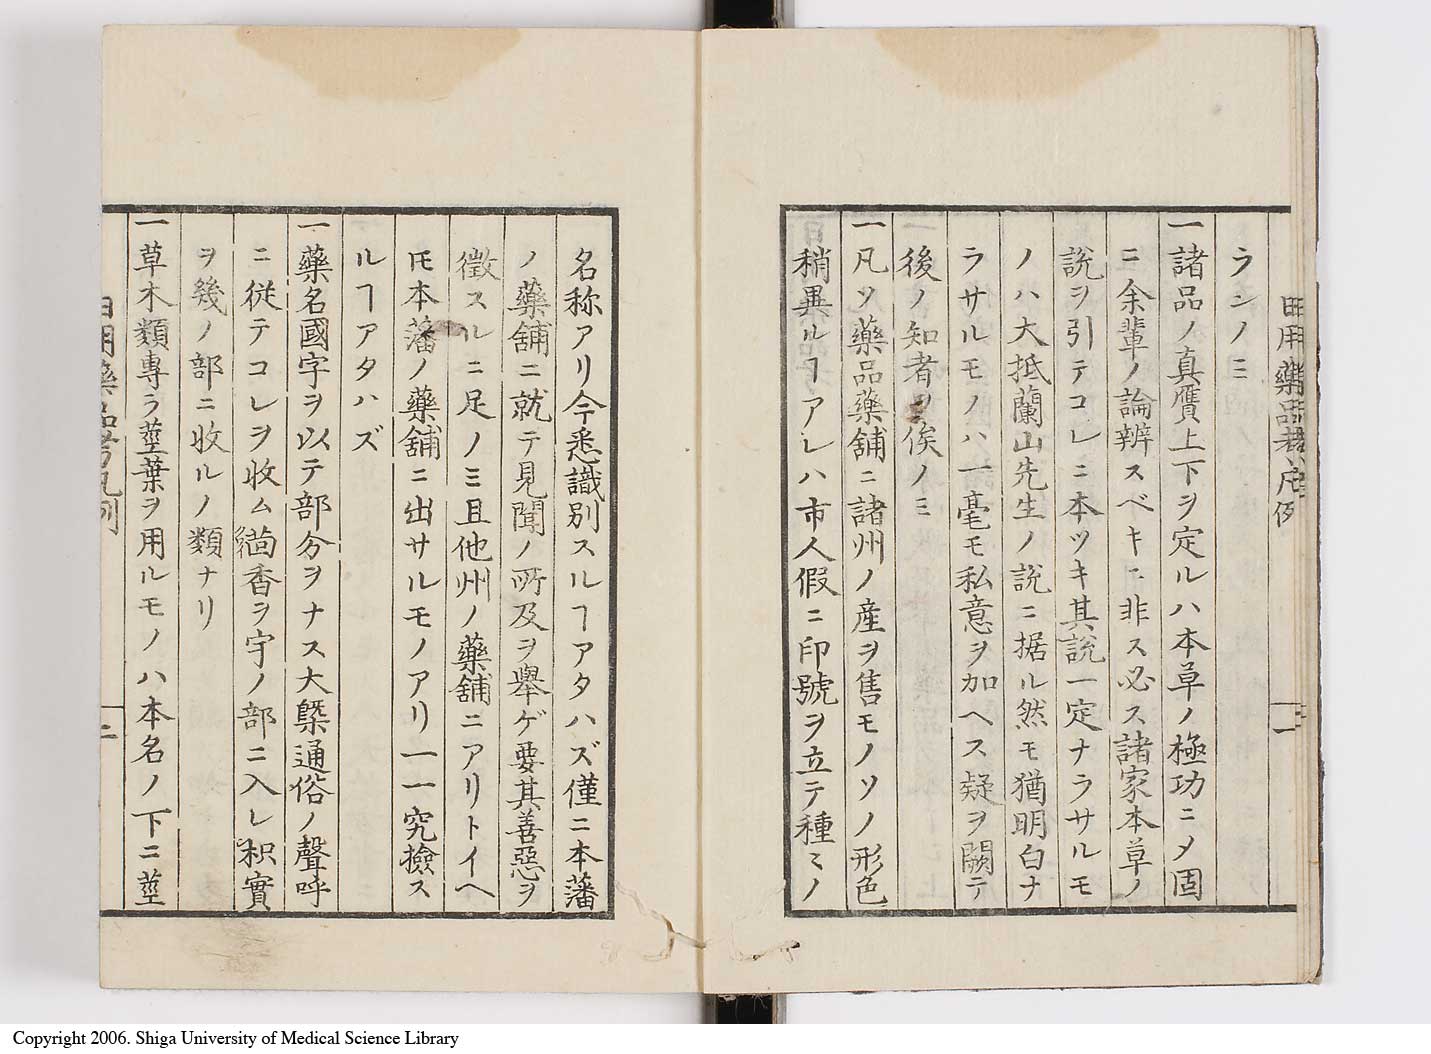 日用藥品考凡例
一
ランノミ
一諸品ノ真贋上下ヲ定ルハ本草ノ極功ニ〆固
ニ余輩ノ論辨スベキニ非ス必ス諸家本草ノ
説ヲ引テコレニ本ツキ其説一定ナラサルモ
ノハ大抵蘭山先生ノ説ニ据ル然モ猶明白ナ
ラサルモノハ一毫モ私意ヲ加ヘス疑ヲ闕テ
後ノ知者ヲ俟ノミ
一凡ソ藥品藥舗ニ諸州ノ産ヲ售モノソノ形色
稍異ルヿアレハ市人假ニ印號ヲ立テ種〻ノ
名称アリ今悉識別スルヿアタハズ僅ニ本藩
ノ藥舗ニ就テ見聞ノ所及ヲ擧ゲ要其善惡ヲ
徴スルニ足ノミ且他州ノ藥舗ニアリトイヘ
𪜈本藩ノ藥舗ニ出サルモノアリ一一究撿ス
ルヿアタハズ
一藥名國字ヲ以テ部分ヲナス大槩通俗ノ聲呼
ニ従テコレヲ收ム茴香ヲ宇ノ部ニ入レ枳實
ヲ幾ノ部ニ收ルノ類ナリ
一草木類專ラ莖葉ヲ用ルモノハ本名ノ下ニ莖
日用藥品考凡例
二
Copyright 2006. Shiga University of Medical Science Library